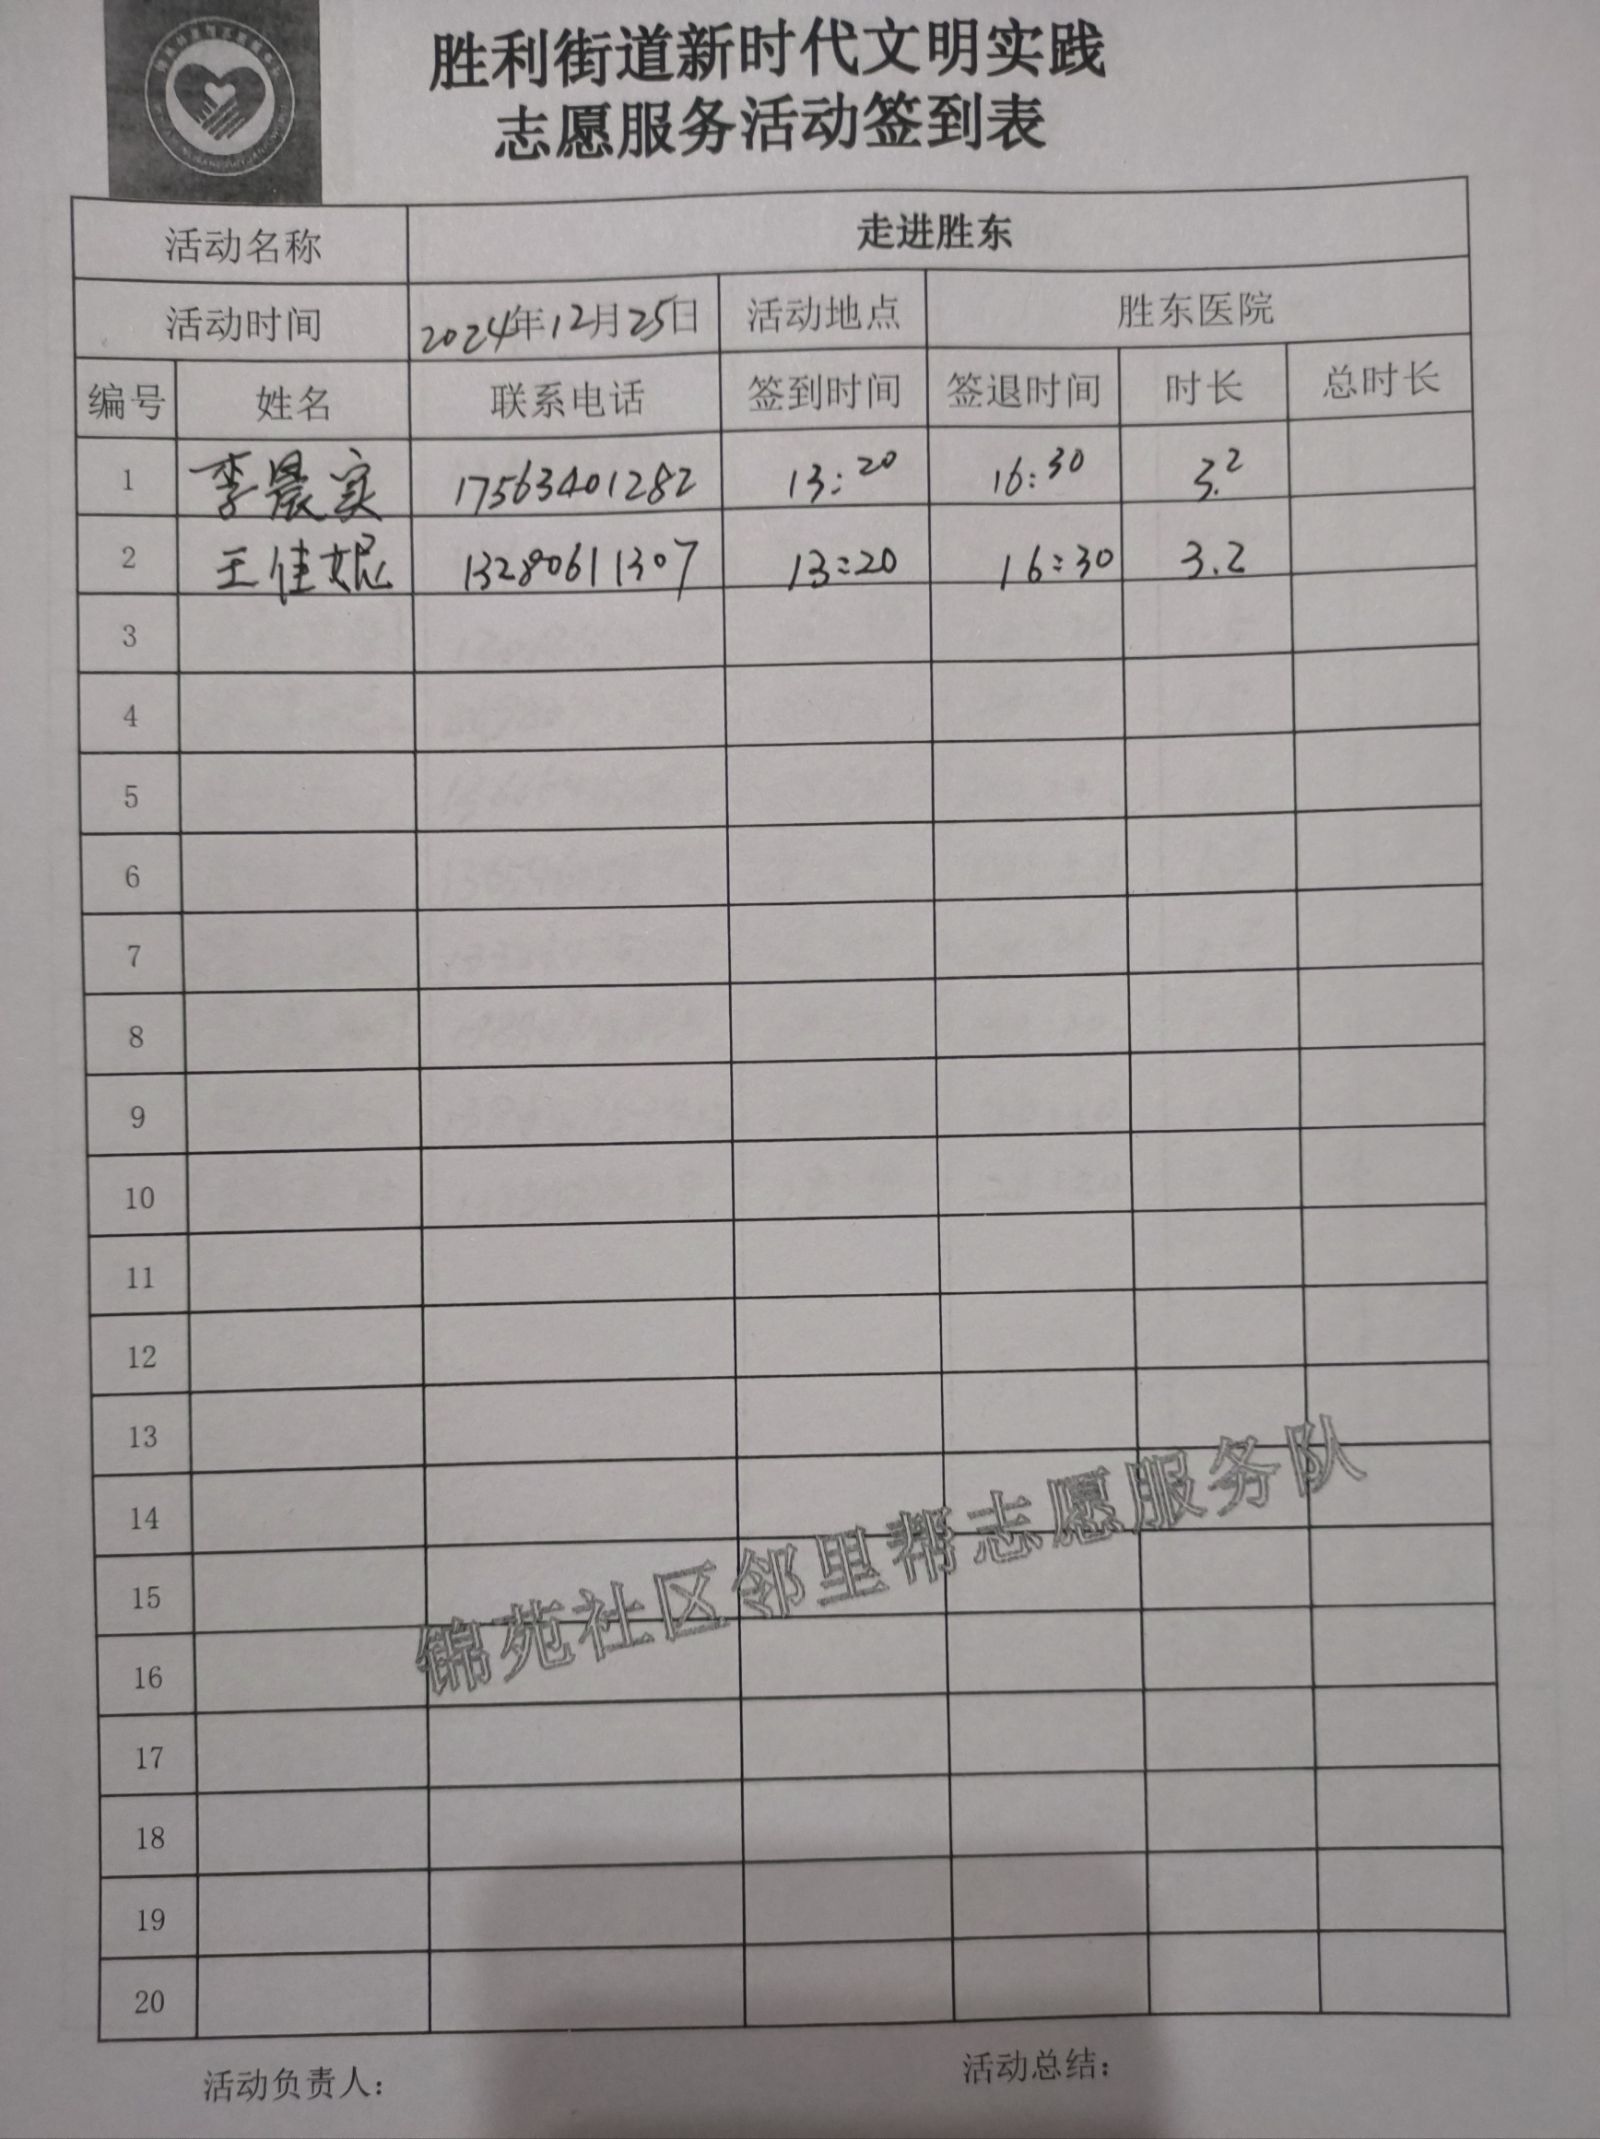 胜利街道新时代文明实践
志愿服务活动签到表
活动名称 走进胜东
活动时间 2024年12月25日 活动地点 胜东医院
编号 姓名 联系电话 签到时间 签退时间 时长 总时长
1 李晨实 17563401282 13:20 16:30 3.2
2 王佳妮 13280611307 13:20 16:30 3.2
3
4
5
6
7
8
9
10
11
12
13
14
15
16
17
18
19
20
锦苑社区邻里帮志愿服务队
活动负责人: 活动总结: